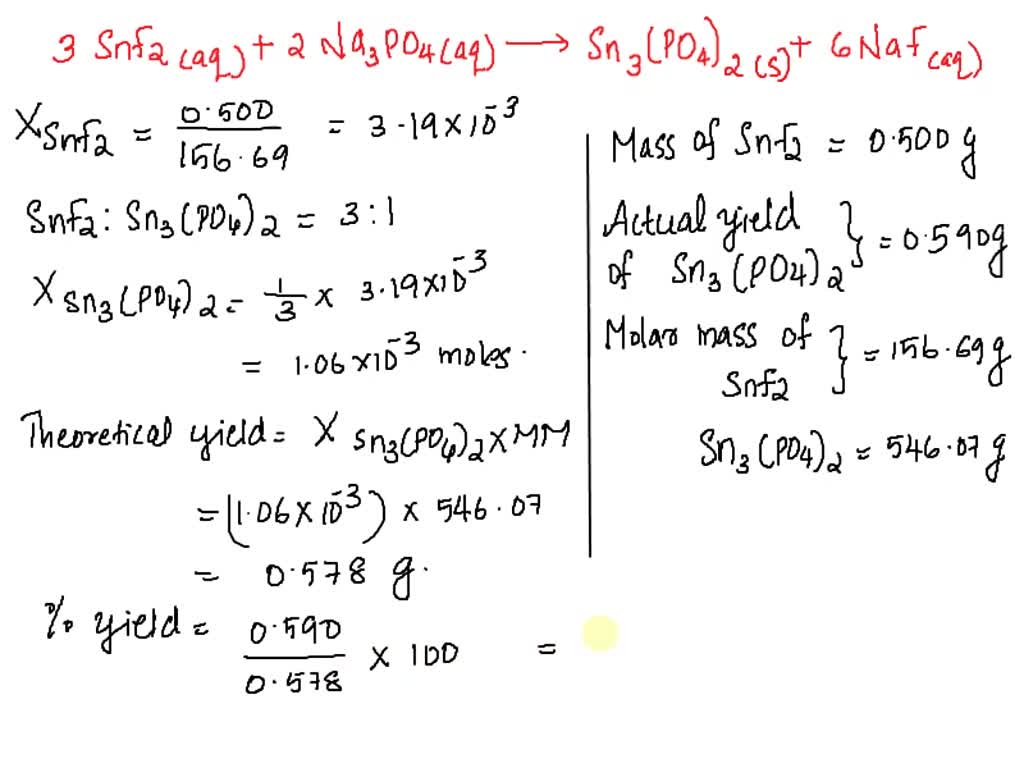 3 Snf2(aq) + 2 Na3PO4(aq) ⟶ Sn3(PO4)2(s) + 6Naf(aq)
XSnf2 = 0.500/156.69 = 3.19×10⁻³
Snf2 : Sn3(PO4)2 = 3:1
XSn3(PO4)2 = 1/3 × 3.19×10⁻³
= 1.06×10⁻³ moles.
Theoretical yield = X Sn3(PO4)2 × MM
= (1.06×10⁻³) × 546.07
= 0.578 g.
% yield = 0.590/0.578 × 100 =
Mass of Snf2 = 0.500 g
Actual yield
of Sn3(PO4)2 } = 0.590g
Molar mass of
Snf2 } = 156.69g
Sn3(PO4)2 = 546.07 g